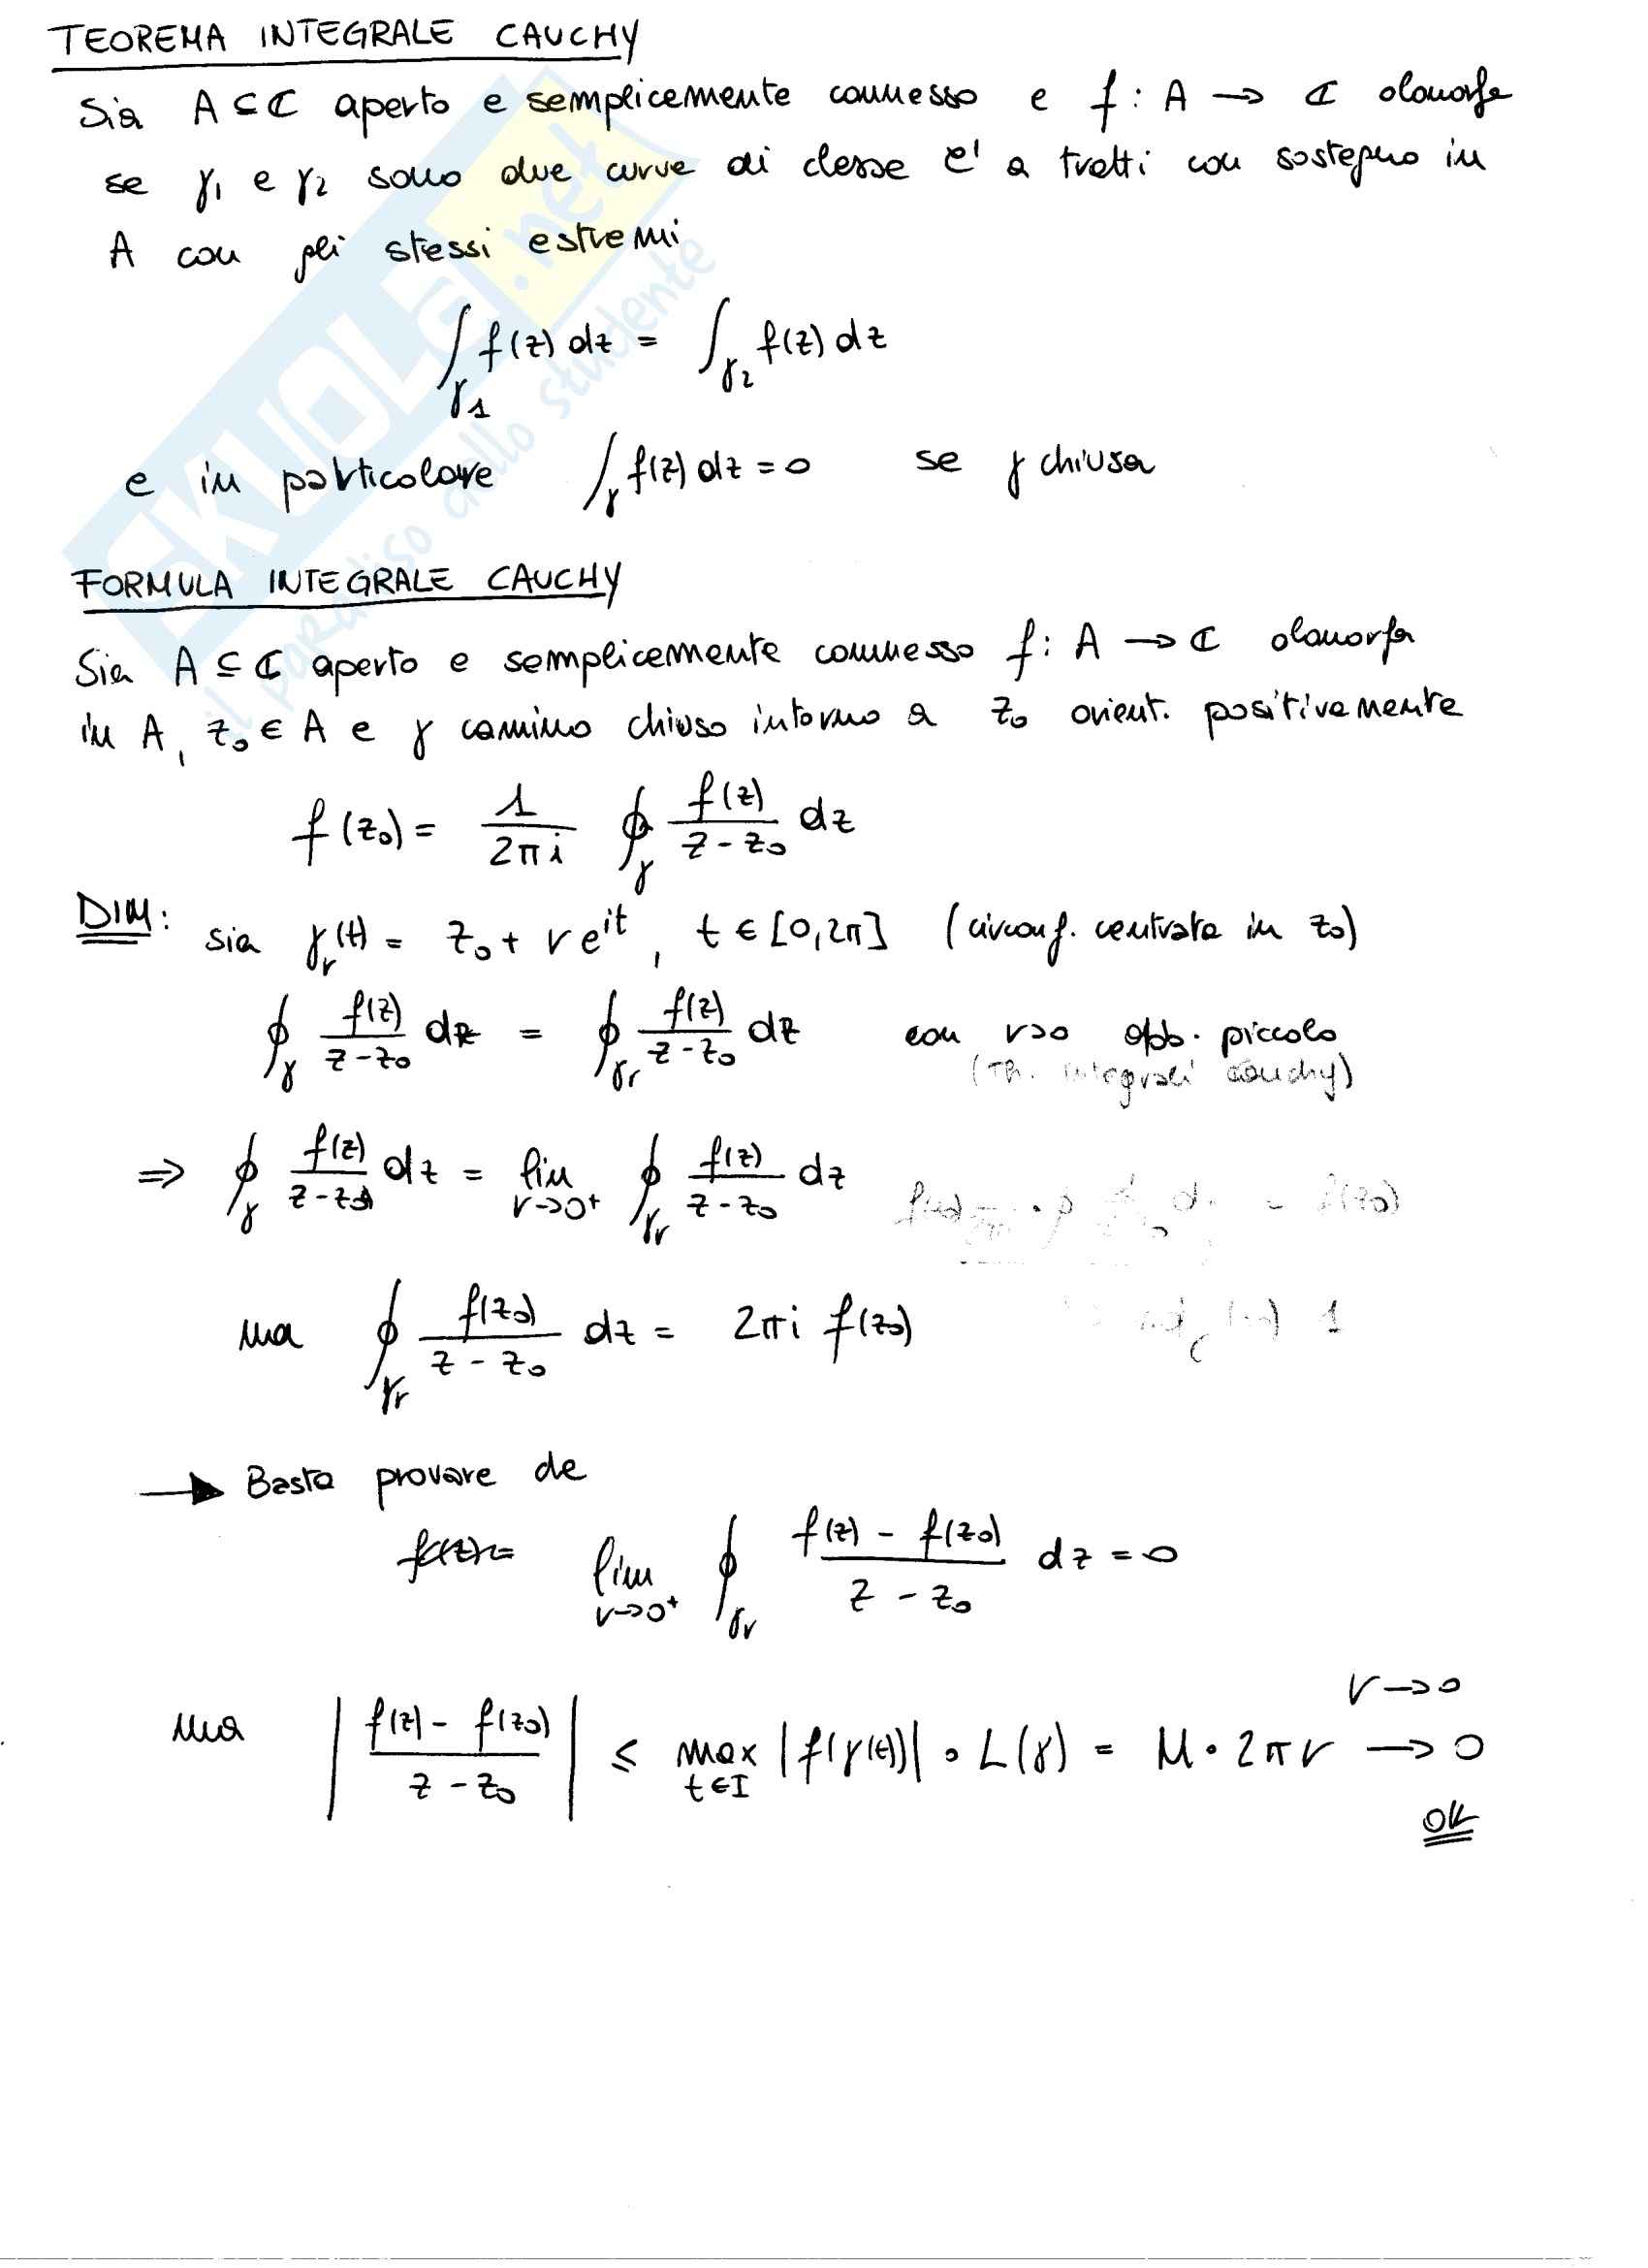 TEOREMA INTEGRALE CAUCHY
Sia A ⊆ ℂ aperto e semplicemente connesso e f : A → ℂ olomorfa
se γ1 e γ2 sono due curve di classe C¹ a tratti con sostegno in
A con gli stessi estremi
∫γ1 f(z) dz = ∫γ2 f(z) dz
e in particolare ∫γ f(z) dz = 0 se γ chiusa
FORMULA INTEGRALE CAUCHY
Sia A ⊆ ℂ aperto e semplicemente connesso f : A → ℂ olomorfa
in A, z0 ∈ A e γ cammino chiuso intorno a z0 orient. positivamente
f(z0) = 1/(2πi) ∮γ f(z)/(z - z0) dz
DIM: sia γr(t) = z0 + r e^it, t ∈ [0,2π] (circonf. centrata in z0)
∮γ f(z)/(z-z0) dz = ∮γr f(z)/(z-z0) dz con r>0 opp. piccolo
(Th. integrali Cauchy)
⇒ ∮γ f(z)/(z-z0) dz = lim r→0⁺ ∮γr f(z)/(z-z0) dz
ma ∮γr f(z0)/(z - z0) dz = 2πi f(z0)
→ Basta provare che
lim r→0⁺ ∮γr (f(z) - f(z0))/(z - z0) dz = 0
ma |(f(z) - f(z0))/(z - z0)| ≤ max t∈I |f(γ(t))| · L(γ) = M · 2πr → 0 r→0
OK
SKUOLA.net
il paradiso dello studente